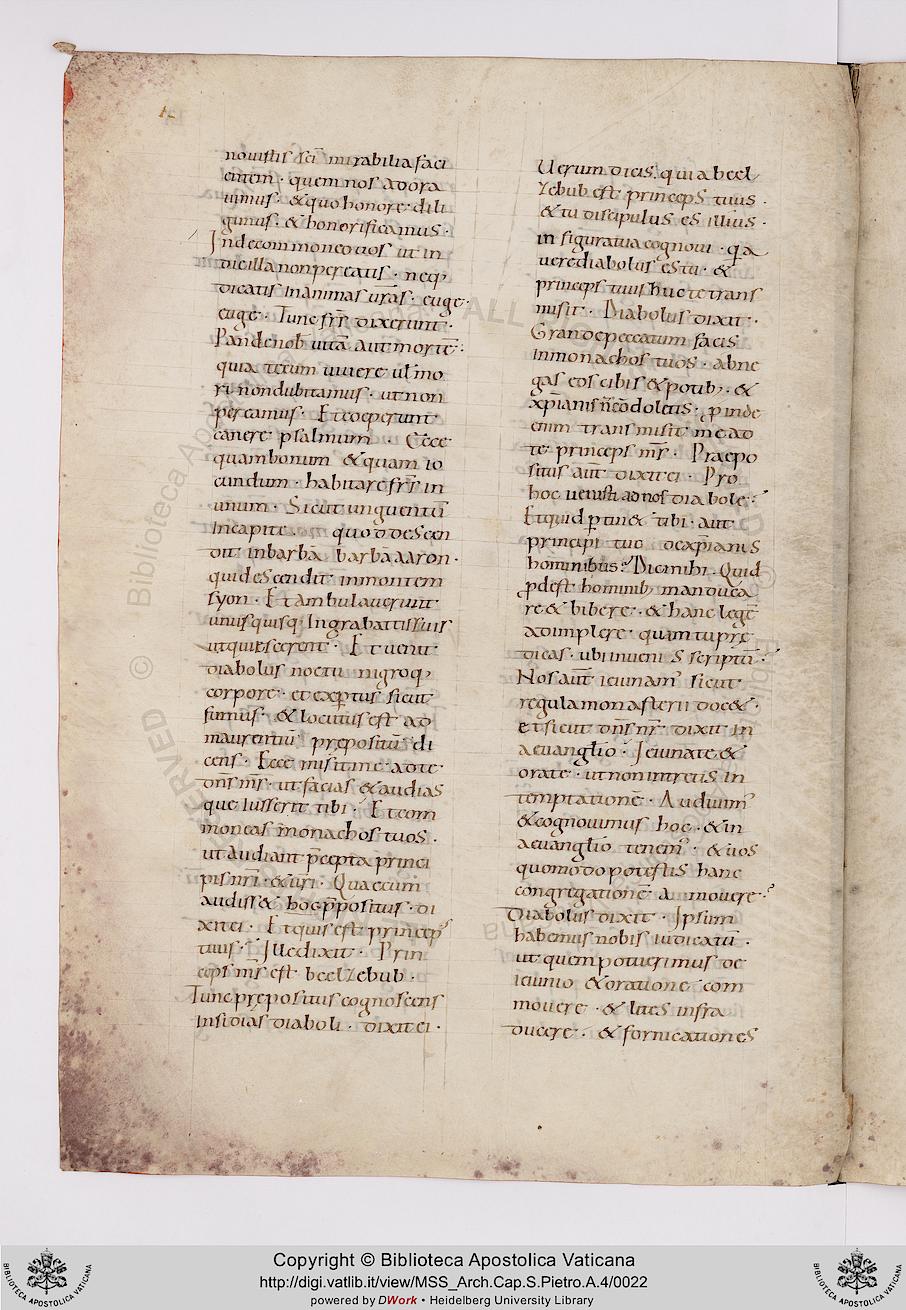 nouistis sc̄i mirabilia faci
entem · quem nos adora
uimus · & quo honore · dili
gimus · & honorificamus ·
Inde commoneo uos ut in
die illa non pereatis · neq;
dicatis in animas ur̄as · euge ·
euge · Tunc fr̄s dixerunt ·
Pande nob̄ uitā aut mortē ·
quia tecum uiuere ul̄ mo
ri non dubitamus · ut non
pereamus · Et coeperunt
canere psalmum · Ecce
quam bonum & quam io
cundum · habitare fr̄s in
unum · Sicut unguentū
in capite · quod descen
dit in barbā barbā aaron ·
qui descendit in montem
syon · Et ambulauerunt
unusquisq; in grabattis suis
ut quiescerent · Et uenit
diabolus noctu nigroq;
corpore · et exaptus sicut
fumus · & locutus est ad
maurentiū prępositū di
cens · Ecce misit me ad te
dn̄s m̄s · ut facias & audias
que iusserit tibi · Et com
moneas monachos tuos ·
ut audiant p̄cepta princi
pis nr̄i · & ur̄i · Quae cum
audiss& hoc p̄positus · di
xit ei · Et quis est princeps
tuus · Ille dixit · Prin
ceps m̄s est beelzebub ·
Tunc prępositus cognoscens
insidias diaboli · dixit ei ·
Uerum dicis · quia beel
zebub est princeps tuus ·
& tu discipulus es illius ·
in figura tua cognoui · q̄a
uere diabolus es tu · &
princeps tuus huc te trans
misit · Diabolus dixit ·
Grande peccatum facis
in monachos tuos · abne
gas eos cibis & potib; · &
xp̄ianis n̄ condoletis · ꝓinde
enim transmisit me ad
te princeps m̄s · Praepo
situs aūt dixit ei · Pro
hoc uenisti ad nos diabole ·
Et quid ꝑtin& tibi · aut
principi tuo de xp̄ianis
hominibus · Dic mihi · Quid
ꝓdest hominib; manduca
re & bibere · & hanc legē
adimplere · quam tu prę
dicas · ubi inuenis scriptū ·
Nos aūt ieiunam̄ sicut
regula monasterii doc& ·
et sicut dn̄s nr̄ dixit in
aeuanglio · Ieiunate &
orate · ut non intretis in
temptationē · Audiuim̄
& cognouimus hoc · & in
aeuanglio tenem̄ · & uos
quomodo potestis hanc
congregationē amouere ·
Diabolus dixit · Ipsum
habemus nobis iudicatū ·
ut quem potuerimus de
ieiunio & oratione com
mouere · & lites infra
ducere · & fornicationes
Copyright © Biblioteca Apostolica Vaticana
http://digi.vatlib.it/view/MSS_Arch.Cap.S.Pietro.A.4/0022
powered by DWork • Heidelberg University Library